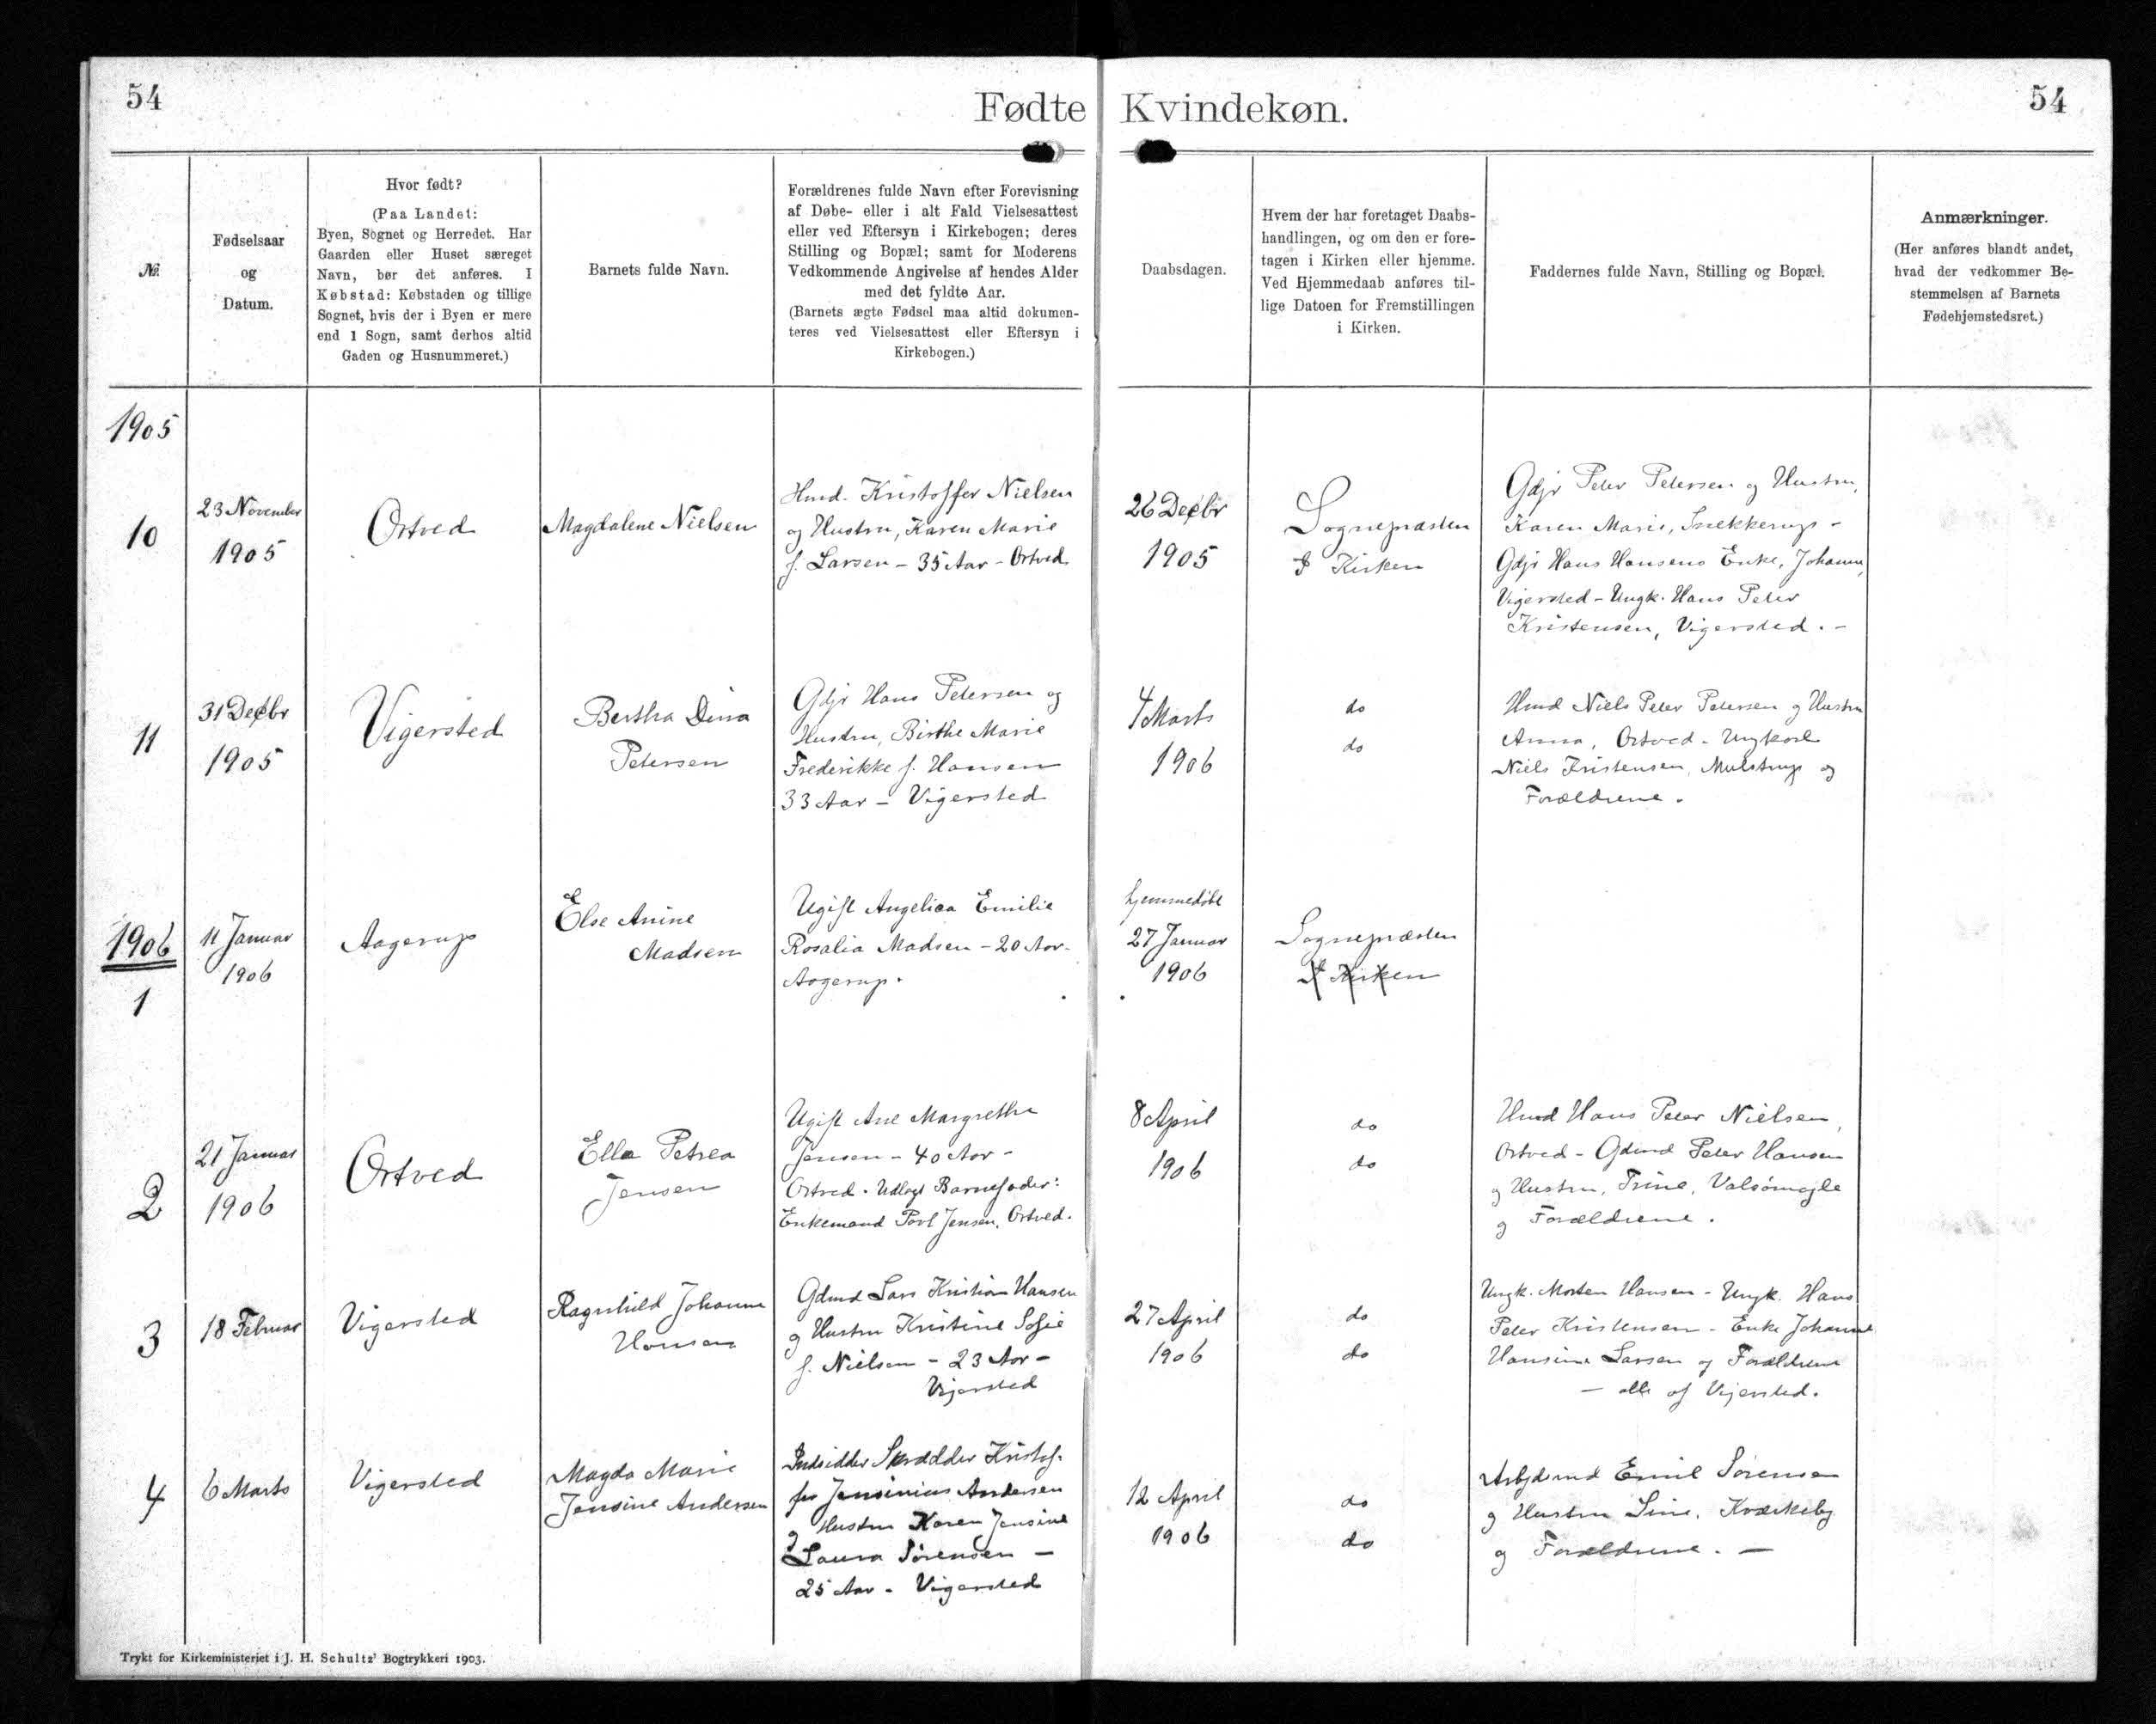 54
Fødte Kvindekøn.
54
№
Fødselsaar
og
Datum.
Hvor født?
(Paa Landet:
Byen, Sognet og Herredet. Har
Gaarden eller Huset særeget
Navn, bør det anføres. I
Købstad: Købstaden og tillige
Sognet, hvis der i Byen er mere
end 1 Sogn, samt derhos altid
Gaden og Husnummeret.)
Barnets fulde Navn.
Forældrenes fulde Navn efter Forevisning
af Døbe- eller i alt Fald Vielsesattest
eller ved Eftersyn i Kirkebogen; deres
Stilling og Bopæl; samt for Moderens
Vedkommende Angivelse af hendes Alder
med det fyldte Aar.
(Barnets ægte Fødsel maa altid dokumen-
teres ved Vielsesattest eller Eftersyn i
Kirkebogen.)
Daabsdagen.
Hvem der har foretaget Daabs-
handlingen, og om den er fore-
tagen i Kirken eller hjemme.
Ved Hjemmedaab anføres til-
lige Datoen for Fremstillingen
i Kirken.
Faddernes fulde Navn, Stilling og Bopæl.
Anmærkninger.
(Her anføres blandt andet,
hvad der vedkommer Be-
stemmelsen af Barnets
Fødehjemstedsret.)
1905
10
23 November
1905
Ortved
Magdalene Nielsen
Hmd. Kristoffer Nielsen
og Hustru, Karen Marie
f. Larsen - 35 Aar - Ortved
26 Decbr
1905
Sognepræsten
I Kirken
Gdjr Peter Petersen og Hustru,
Karen Marie, Snekkerup -
Gdjr Hans Hansens Enke, Johanne,
Vigersted - Ungk. Hans Peter
Kristensen, Vigersted. -
11
31 Decbr
1905
Vigersted
Bertha Dina
Petersen
Gdjr Hans Petersen og
Hustru, Birthe Marie
Frederikke f. Hansen
33 Aar - Vigersted
4 Marts
1906
do
do
Hmd Niels Peter Petersen og Hustru
Anna, Ortved - Ungkarl
Niels Kristensen, Mulstrup og
Forældrene.
1906
1
11 Januar
1906
Aagerup
Else Anine
Madsen
Ugift Angelica Emilie
Rosalia Madsen - 20 Aar -
Aagerup.
hjemmedøbt
27 Januar
1906
Sognepræsten
I Kirken
2
21 Januar
1906
Ortved
Ella Petrea
Jensen
Ugift Ane Margrethe
Jensen - 40 Aar -
Ortved. Udlagt Barnefader:
Enkemand Poul Jensen, Ortved.
8 April
1906
do
do
Hmd Hans Peter Nielsen,
Ortved - Gdmd Peter Hansen
og Hustru, Trine, Valsømagle
og Forældrene.
3
18 Februar
Vigersted
Ragnhild Johanne
Hansen
Gdmd Lars Kristian Hansen
og Hustru Kristine Sofie
f. Nielsen - 23 Aar -
Vigersted
27 April
1906
do
do
Ungk. Morten Hansen - Ungk. Hans
Peter Kristensen - Enke Johanne
Hansine Larsen og Forældrene
- alle af Vigersted.
4
6 Marts
Vigersted
Magda Marie
Jensine Andersen
Indsidder Skrædder Kristof-
fer Jensinius Andersen
og Hustru Karen Jensine
Laura Sørensen -
25 Aar - Vigersted
12 April
1906
do
do
Arbejdsmd Emil Sørensen
og Hustru Sine, Kværkeby
og Forældrene. -
Trykt for Kirkeministeriet i J. H. Schultz' Bogtrykkeri 1903.